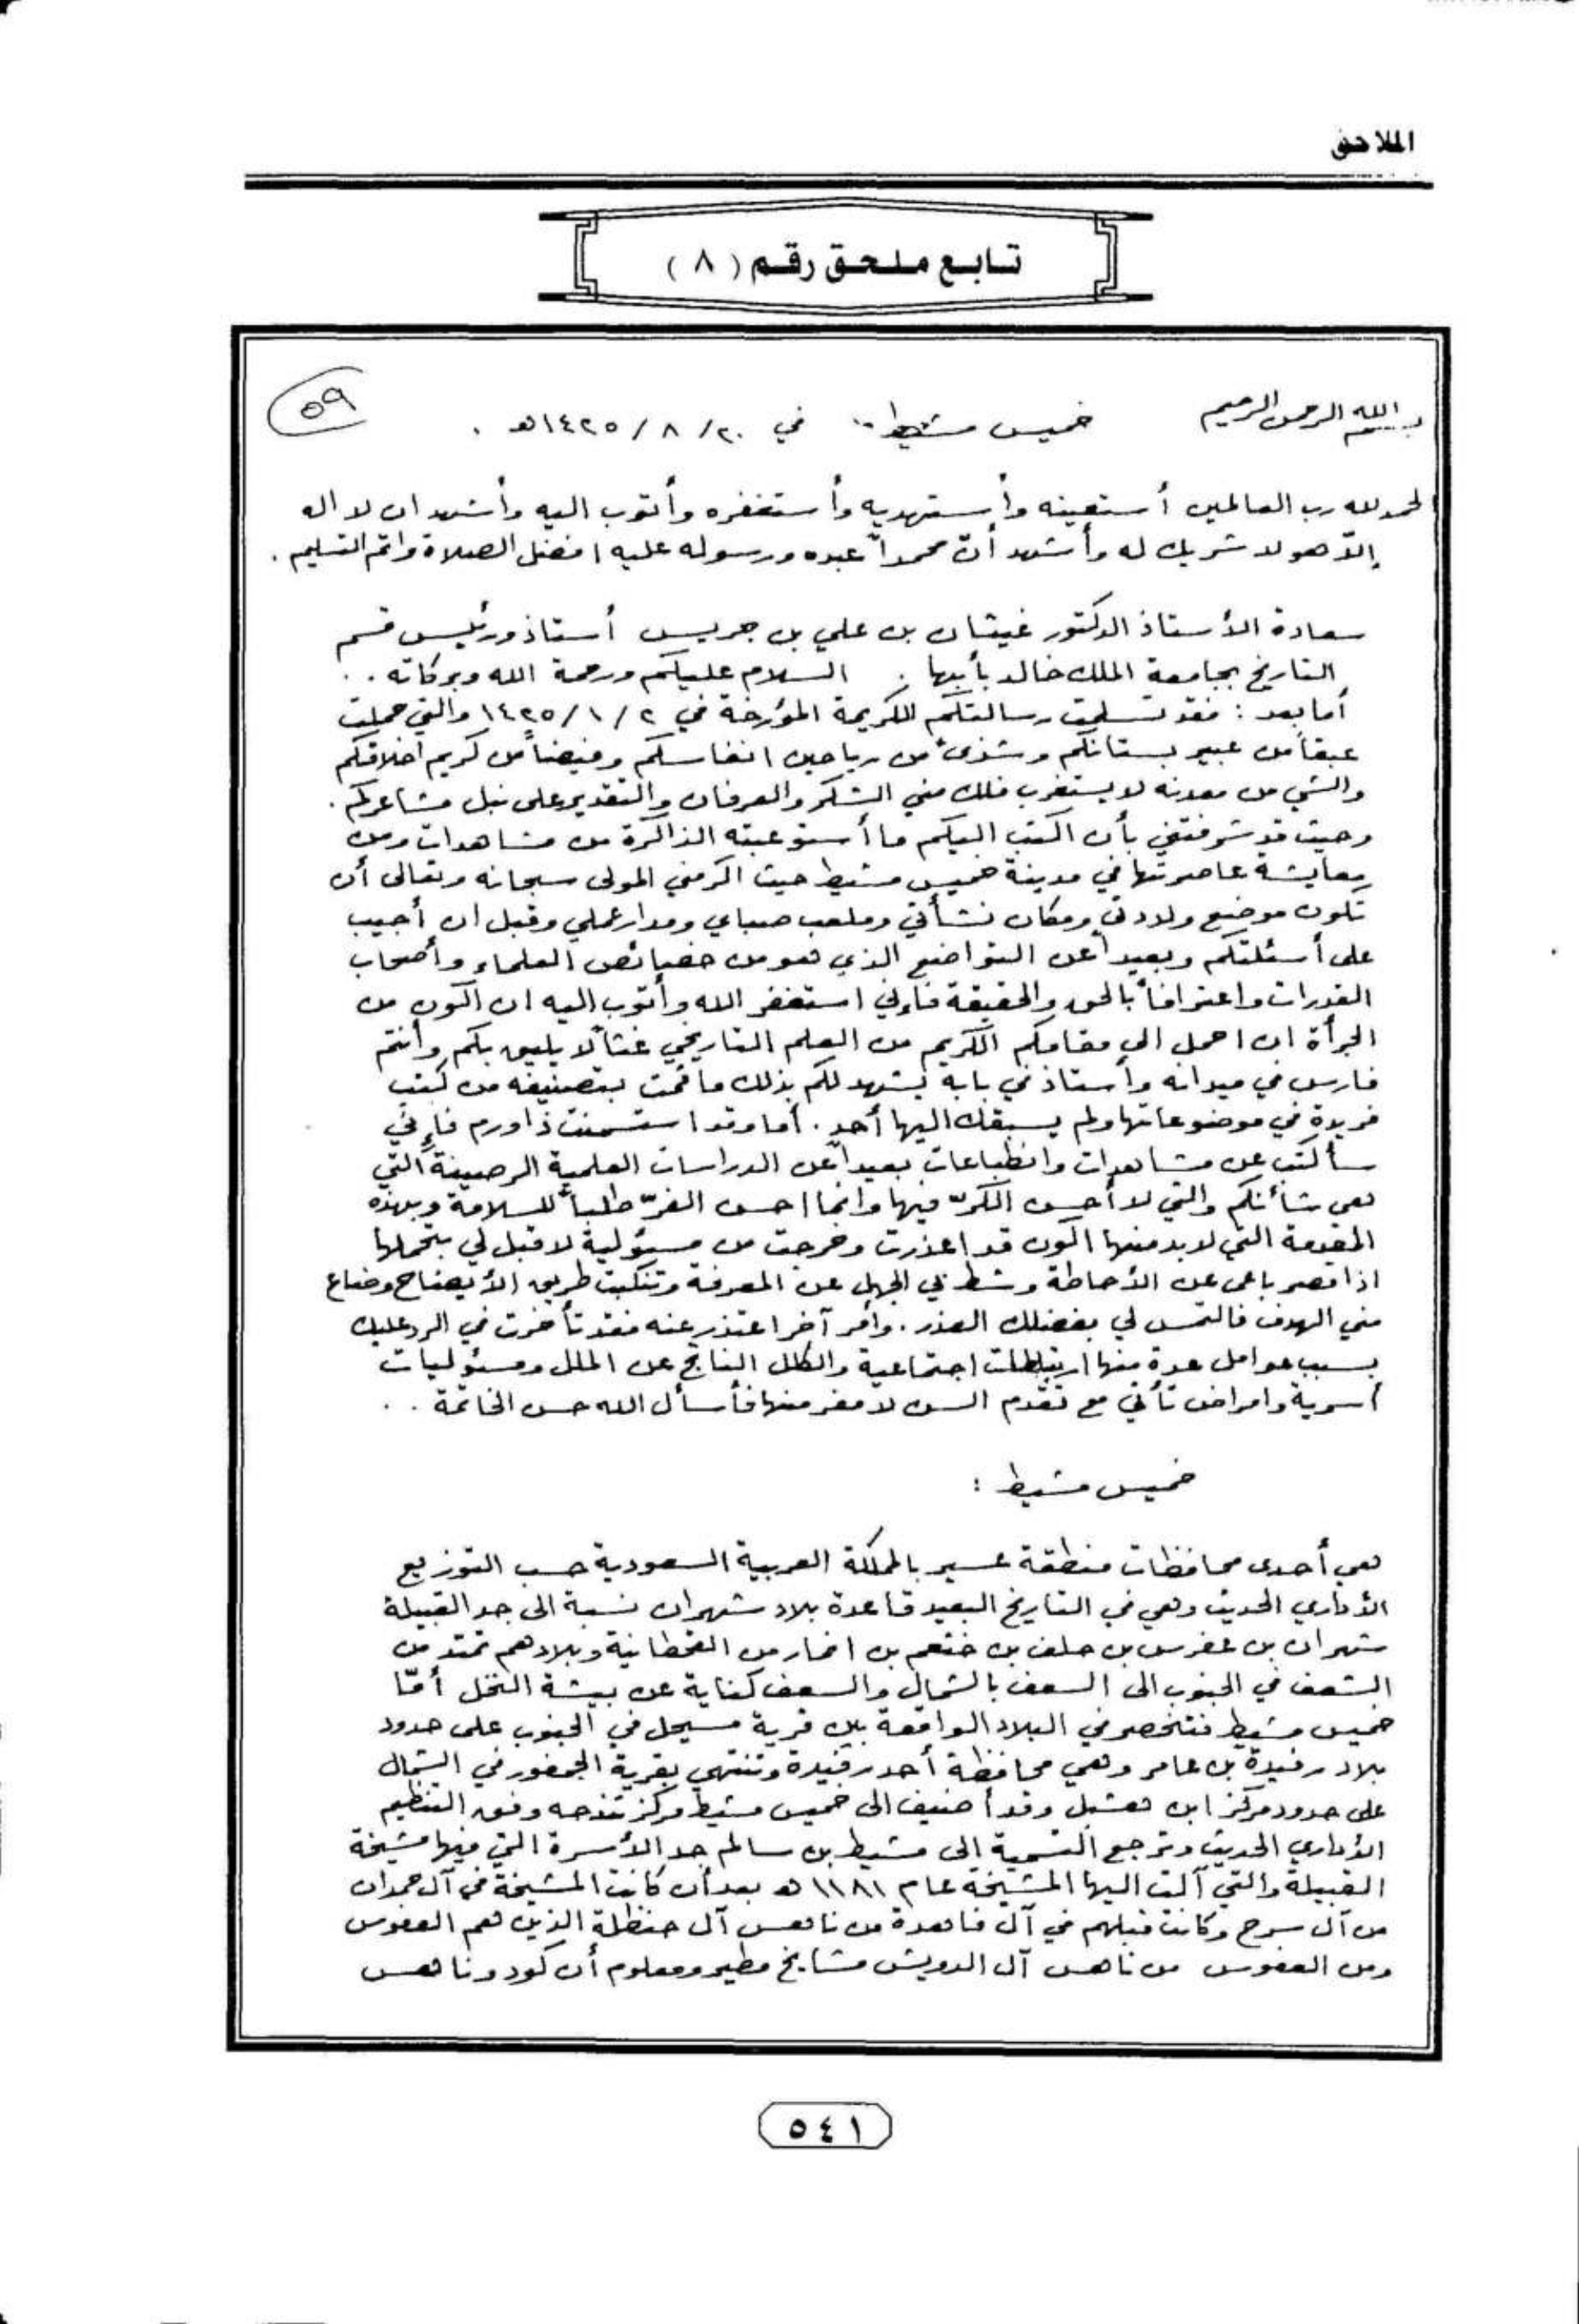 الملاحق
تابع ملحق رقم ( ٨ )
٥٩
بسم الله الرحمن الرحيم خميس مشيط .. في ٢٠ / ٨ / ١٤٢٥هـ .
الحمد لله رب العالمين أستعينه وأستهديه وأستغفره وأتوب اليه وأشهد ان لا اله
إلاّ هو لا شريك له وأشهد أنّ محمداً عبده ورسوله عليه افضل الصلاة واتم التسليم .
سعادة الأستاذ الدكتور غيثان بن علي بن جريس أستاذ ورئيس قسم
التاريخ بجامعة الملك خالد بأبها . السلام عليكم ورحمة الله وبركاته . .
أما بعد : فقد تسلمت رسالتكم الكريمة المؤرخة في ٢ / ١ / ١٤٢٥ والتي حملت
عبقاً من عبير بستانكم وشذىً من رياحين انفاسكم وفيضاً من كريم اخلاقكم
والشي من معدنه لا يستغرب فلك مني الشكر والعرفان والتقدير على نبل مشاعركم .
وحيث قد شرفتني بأن اكتب اليكم ما أستوعبته الذاكرة من مشاهدات ومن
معايشة عاصرتها في مدينة خميس مشيط حيث اكرمني المولى سبحانه وتعالى أن
تكون موضع ولادتي ومكان نشأتي وملعب صباي ومدار عملي وقبل ان أجيب
على أسئلتكم وبعيداً عن التواضع الذي هو من خصائص العلماء وأصحاب
القدرات واعترافاً بالحق والحقيقة فإني استغفر الله وأتوب اليه ان اكون من
الجرأة ان احمل الى مقامكم الكريم من العلم التاريخي غثاً لا يليق بكم وأنتم
فارس في ميدانه وأستاذ في بابه يشهد لكم بذلك ما قمت بتصنيفه من كتب
فريدة في موضوعاتها ولم يسبقك اليها أحد . أما وقد استسمنت ذا ورم فإني
سأكتب عن مشاهدات وانطباعات بعيداً عن الدراسات العلمية الرصينة التي
هي شأنكم والتي لا أحسن الكرّ فيها وانما احسن الفرّ طلباً للسلامة وبهذه
المقدمة التي لابد منها اكون قد اعذرت وخرجت من مسئولية لا قبل لي بتحملها
اذا قصر باعي عن الأحاطة وشط بي الجهل عن المعرفة وتنكبت طريق الأيضاح وضاع
مني الهدف فالتمس لي بفضلك العذر . وأمر آخر اعتذر عنه فقد تأخرت في الرد عليك
بسبب عوامل عدة منها ارتباطات اجتماعية والكلل الناتج عن الملل ومسئوليات
أسرية وامراض تأتي مع تقدم السن لا مفر منها فأسأل الله حسن الخاتمة . .
خميس مشيط :
هي أحدى محافظات منطقة عسير بالمملكة العربية السعودية حسب التوزيع
الأداري الحديث وهي في التاريخ البعيد قاعدة بلاد شهران نسبة الى جد القبيلة
شهران بن عفرس بن حلف بن خثعم بن انمار من القحطانية وبلادهم تمتد من
الشعف في الجنوب الى السعف بالشمال والسعف كناية عن بيشة النخل أمّا
خميس مشيط فتنحصر في البلاد الواقعة بين قرية مسيحل في الجنوب على حدود
بلاد رفيدة بن عامر وهي محافظة أحد رفيدة وتنتهي بقرية الجمغور في الشمال
على حدود مركز ابن هشبل وقد أضيف الى خميس مشيط مركز تندحه وفق التنظيم
الأداري الحديث وترجع التسمية الى مشيط بن سالم جد الأسرة التي فيها مشيخة
القبيلة والتي آلت اليها المشيخة عام ١١٨١ هـ بعد أن كانت المشيخة في آل حمدان
من آل سرح وكانت قبلهم في آل فاهدة من ناهس آل حنظلة الذين هم العفوس
ومن العفوس من ناهس آل الدويش مشايخ مطير ومعلوم أن كود وناهس
٥٤١